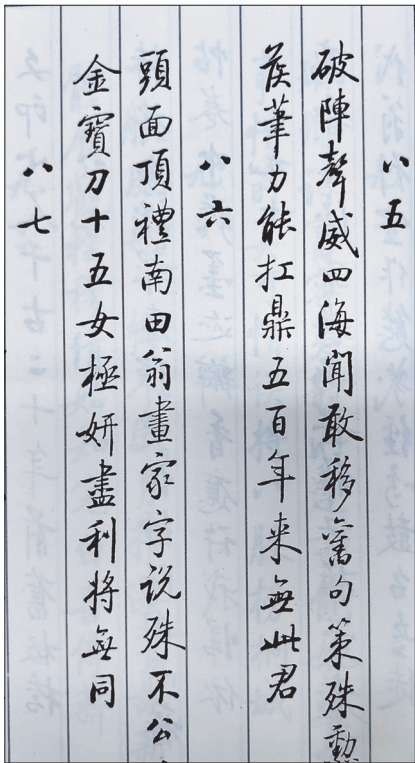 八五
破陣聲威四海聞敢移舊句策殊勳
俟筆力能扛鼎五百年来無此君
八六
頭面頂禮南田翁畫家字说殊不公
金寶刀十五女極妍盡利將無同
八七